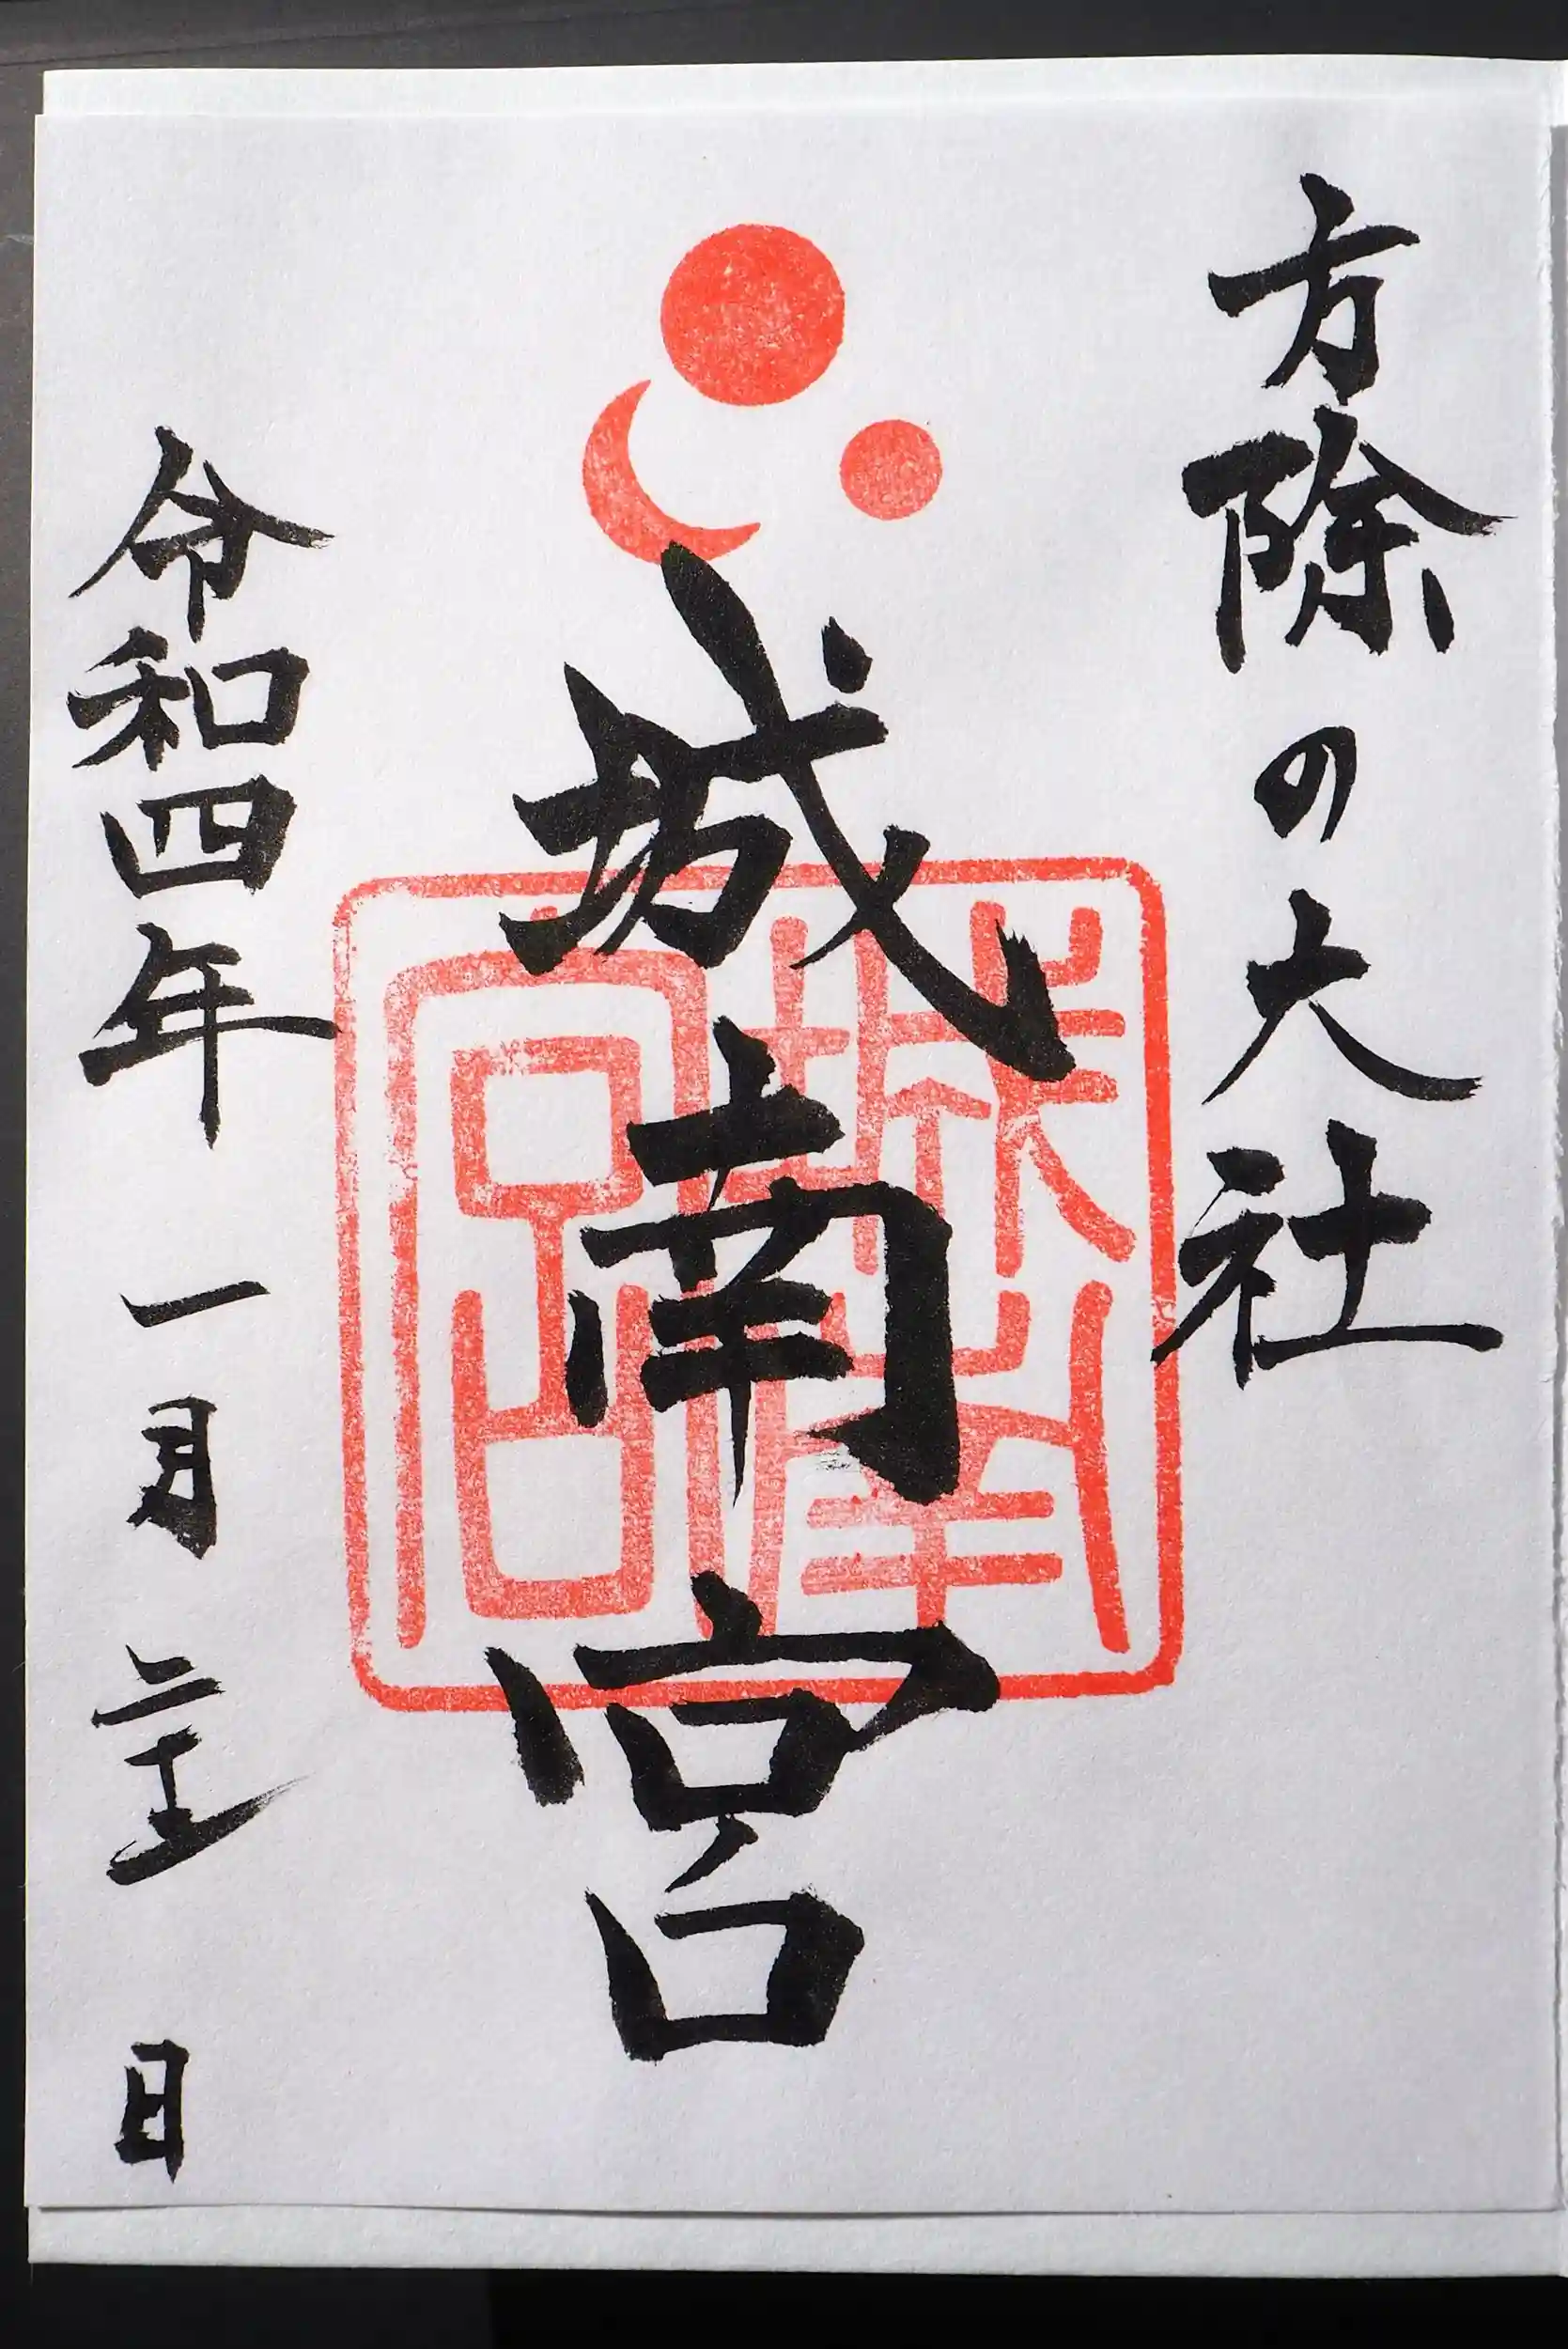 方除の大社
城南宮
城南
宮
令和四年 一月 二 日